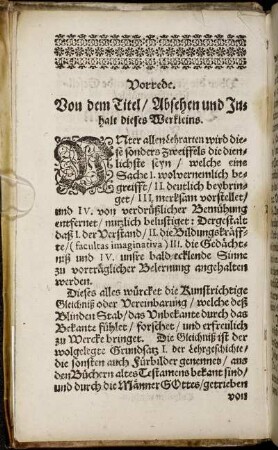 Vorrede.
Von dem Titel/ Absehen und Jn-
halt dieses Werkleins.
UNter allen Lehrarten wird die-
se sonders Zweiffels die dien-
lichste seyn / welche eine
Sache I. wolvernemlich be-
greifft/ II. deutlich beybrin-
get/ III. merksam vorstellet/
und IV. von verdrüßlicher Bemühung
entfernet/ nutzlich belustiget: Dergestalt
daß I. der Verstand/ II. die Bildungskräff-
te/ (facultas imaginativa) III. die Gedächt-
niß und IV. unsre bald ecklende Sinne
zu vorträglicher Belernung angehalten
werden.
Dieses alles würcket die Kunstrichtige
Gleichniß oder Vereinbarung/ welche deß
Blinden Stab/ das Unbekante durch das
Bekante fühlet/ forschet/ und erfreulich
zu Wercke bringet. Die Gleichniß ist der
wolgelegte Grundsatz I. der Lehrgeschichte/
die sonsten auch Fürbilder genennet/ aus
den Büchern altes Testamens bekant sind/
und durch die Männer GOttes/ getrieben
von